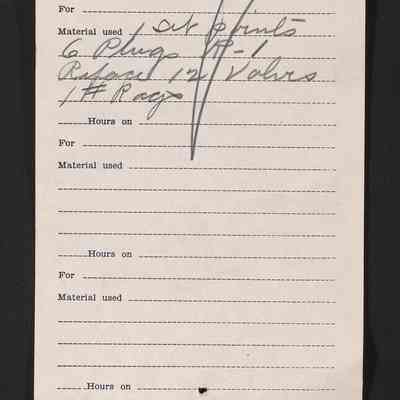 For
Material used 1 Set points
6 Plugs R-1
Reface 12 Valvs
1 # Rags
Hours on
For
Material used
Hours on
For
Material used
Hours on